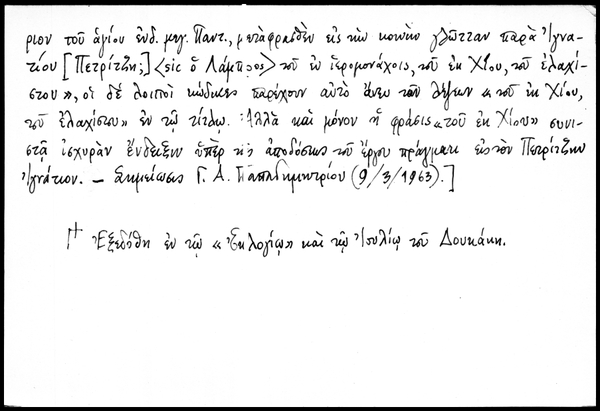 ριον τοῦ ἁγίου ἐνδ. μεγ. Παντ., μεταφρασθὲν εἰς τὴν κοινὴν γλῶτταν παρὰ Ἰγνα-
τίου [Πετρίτζη;] <sic ὁ Λάμπρος> τοῦ ἐν ἱερομονάχοις, τοῦ ἐκ Χίου, τοῦ ἐλαχί-
στου», οἱ δὲ λοιποὶ κώδικες παρέχουν αὐτὸ ἄνευ τῶν λέξεων «τοῦ ἐκ Χίου,
τοῦ ἐλαχίστου» ἐν τῷ τίτλῳ. Ἀλλὰ καὶ μόνον ἡ φράσις «τοῦ ἐκ Χίου» συνι-
στᾷ ἰσχυρὰν ἔνδειξιν ὑπὲρ τῆς ἀποδόσεως τοῦ ἔργου πράγματι εἰς τὸν Πετρίτζην
Ἰγνάτιον. — Σημείωσις Γ. Α. Παπαδημητρίου (9/3/1963).]
Ἐξεδόθη ἐν τῷ «Ἐκλογίῳ» καὶ τῷ Ἰουλίῳ τοῦ Δουκάκη.